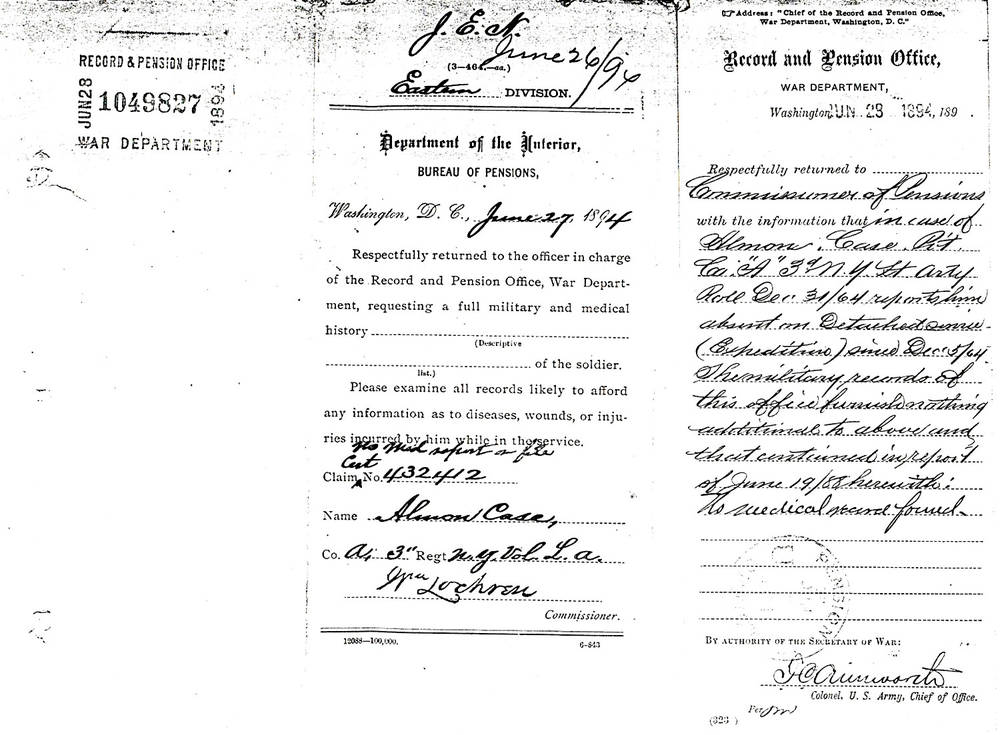 RECORD & PENSION OFFICE
JUN 28
1049827
1894
WAR DEPARTMENT
J. E. N.
June 26/94
(3—464.—aa.)
Eastern DIVISION.
Department of the Interior,
BUREAU OF PENSIONS,
Washington, D. C., June 27, 1894
Respectfully returned to the officer in charge
of the Record and Pension Office, War Depart-
ment, requesting a full military and medical
history
(Descriptive
of the soldier.
list.)
Please examine all records likely to afford
any information as to diseases, wounds, or inju-
ries incurred by him while in the service.
No Med report on file
Cert
Claim No. 432412
Name Almon Case,
Co. A, 3" Regt N.Y. Vol. L. a.
Wm Lochren
Commissioner.
12088—100,000.
6-843
Address: "Chief of the Record and Pension Office,
War Department, Washington, D. C."
Record and Pension Office,
WAR DEPARTMENT,
Washington, JUN 28 1894, 189 .
Respectfully returned to
Commissioner of Pensions
with the information that in case of
Almon Case Pvt.
Co. "A" 3d N Y Lt Arty
Roll Dec. 31/64 reports him
absent on Detached service
(Expedition) since Dec 5/64.
The military records of
this office furnish nothing
additional to above and
that contained in report
of June 19/88 herewith.
No medical record found.
BY AUTHORITY OF THE SECRETARY OF WAR:
F C Ainsworth
Colonel, U. S. Army, Chief of Office.
Per
(323 )